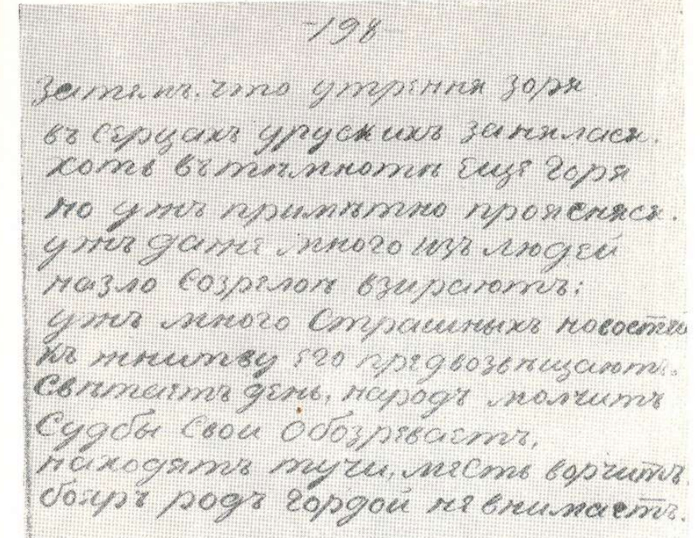 -198-
Затемъ. что утрення зоря
въ сердцахъ урускихъ занилася.
хоть вътъмноты еще горя
но ужъ примѣтно проясняся.
ужъ даже много изъ людей
назло созрелоп взирають:
ужъ много страшныхъ новостей
къ жнитву его предвозвѣщають.
свѣтаетъ день, народъ молчитъ
Судбы свои обозреваетъ,
находятъ тучи, месть ворчитъ.
бояръ родъ гордой не внимаетъ.